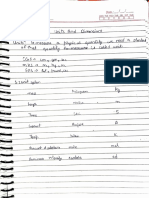 Units And Dimensions
Units:- To measure a physical quantity we need a standard
of that quantity for measurement is called unit.
CGS = cm, gm, sec
MKS = m, kg, sec
FPS = foot, pound, sec
S.I unit system
mass Kilogram kg
length metre m
Time second s
Current Ampere A
Temp Kelvin K
Amount of substance mole mol
Luminous intensity candela cd